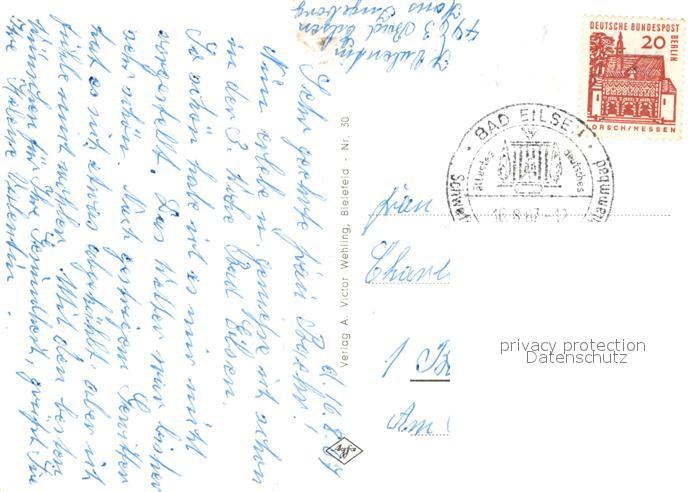 Valentin
4963 Bad Eilsen
Haus Ingeborg
d. 16. 8. 67
Sehr geehrte Frau
Nun erlebe u. genieße ich schon
in der 3. Woche Bad Eilsen.
So schön habe ich es mir nicht
vorgestellt. Das Wetter war bisher
sehr schön. Seit gestrigem Gewitter
hat es sich etwas abgekühlt, aber ich
fühle mich wohler. Mit den besten
Wünschen für Ihre Gesundheit, grüßt Sie
Ihre Valentin.
Verlag A. Victor Wehling, Bielefeld - Nr. 30
DEUTSCHE BUNDESPOST
BERLIN
20
LORSCH/HESSEN
BAD EILSEN
ältestes deutsches
16.8.67-12
Frau
1
Am
privacy protection
Datenschutz